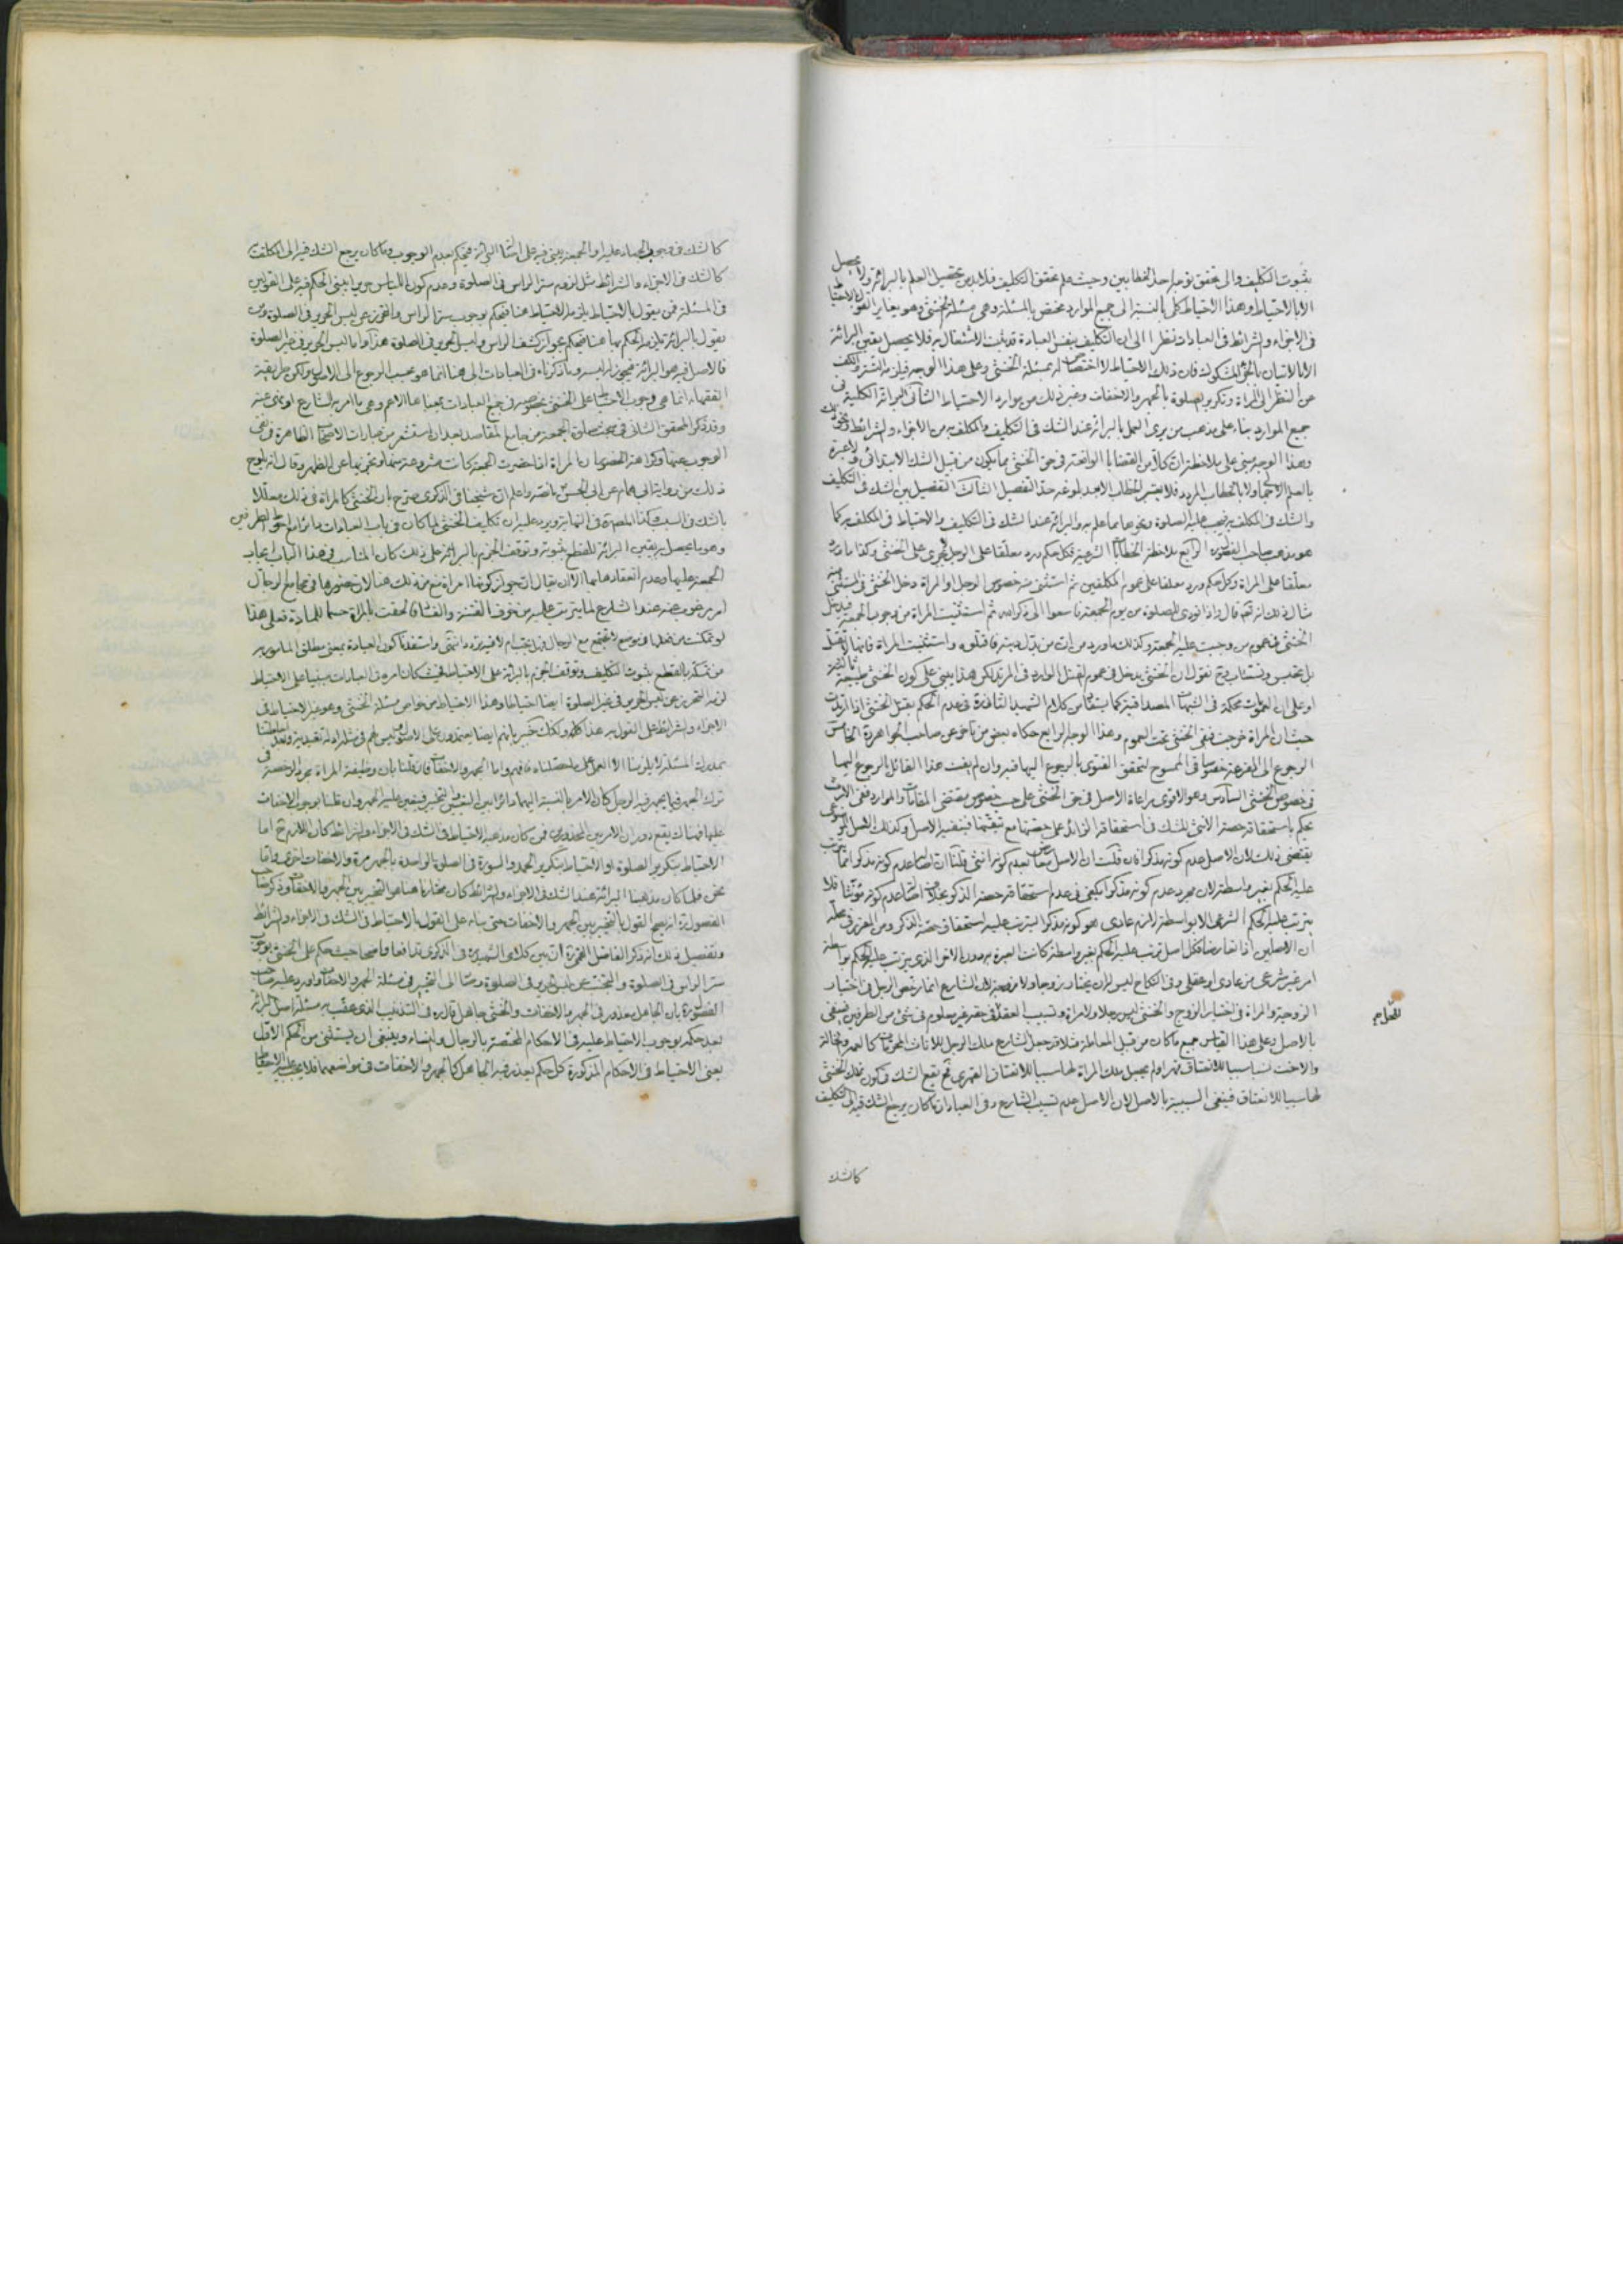 بثبوت التكليف والى تحقق توجه احد الخطابين وحيث علم تحقق التكليف فلا بد من تحصيل العلم بالبرائة ولا يحصل
الا بالاحتياط وهذا الاحتياط كلى بالنسبة الى جميع الموارد مختص بالمسئلة وهى مسئلة الخنثى وهو يغاير القول بالاحتياط
فى الاجزاء والشرائط فى العبادات نظرا الى ان التكليف بنفس العبادة قد ثبت الاشتغال به فلا يحصل يقين البرائة
الا بالاتيان بالجزء المشكوك فان ذلك الاحتياط لا اختصاص له بمسئلة الخنثى وعلى هذا الوجه فيلزمه التستر والكف
عن النظر الى المراة وتكرير الصلوة بالجهر والاخفات وغير ذلك من موارد الاحتياط الثانى البرائة الكلية فى
جميع الموارد بناء على مذهب من يرى العمل بالبرائة عند الشك فى التكليف والمكلف به من الاجزاء والشرائط ونحو ذلك
وهذا الوجه مبنى على ملاحظة ان كلا من القضايا الواقعة فى حق الخنثى مما يكون من قبيل الشك الابتدائى ولا عبرة
بالعلم الاجمالى ولا بالخطاب المردد فلا يعتبر الخطاب الا بعد بلوغه حد التفصيل الثالث التفصيل بين الشك فى التكليف
والشك فى المكلف به فيجب عليه الصلوة ونحوها مما علم به والبرائة عند الشك فى التكليف والاحتياط فى المكلف به كما
هو مذهب صاحب الفصول ره الرابع ملاحظة الخطابات الشرعية فكل حكم ورد معلقا على الرجل لا يجرى على الخنثى وكذا ما ورد
معلقا على المراة وكل حكم ورد معلقا على عموم المكلفين ثم استثنى منه خصوص الرجل او المراة دخل الخنثى فى المستثنى منه
مثال ذلك انه تعالى قال واذا نودى للصلوة من يوم الجمعة فاسعوا الى ذكر الله ثم استثنيت المراة من وجوب الجمعة فيدخل
الخنثى فى عموم من وجبت عليه الجمعة وكذلك ما ورد من ان من بدل دينه فاقتلوه واستثنيت المراة فانها لا تقتل
بل تحبس وتستتاب فح نقول ان الخنثى يدخل فى عموم القتل الوارد فى المرتد لكن هذا يبنى على كون الخنثى طبيعة ثالثة
او على ان العمومات محكمة فى الشبهات المصداقية كما يستفاد من كلام الشهيد الثانى ره فى عدم الحكم بقتل الخنثى اذا ارتدت
حيث ان المراة خرجت فبقى الخنثى تحت العموم وهذا الوجه الرابع حكاه بعض من تاخر عن صاحب الجواهر ره الخامس
الرجوع الى القرعة خصوصا فى الممسوح لتحقق الفتوى بالرجوع اليها فيه وان لم يثبت هذا القائل بالرجوع اليها
فى خصوص الخنثى السادس وهو الاقوى مراعاة الاصل فى حق الخنثى على حسب خصوص مقتضى المقامات والموارد ففى الارث
يحكم باستحقاقه حصة الانثى للشك فى استحقاقه الزائد على حصتها مع تيقنها فينفيه الاصل وكذلك الاصل الموضوعى
يقتضى ذلك لان الاصل عدم كونه مذكرا فان قلت ان الاصل معارض بعدم كونه انثى قلنا ان اصالة عدم كونه مذكرا انما يترتب
عليه الحكم بغير واسطة لان مجرد عدم كونه مذكرا يكفى فى عدم استحقاقه حصة الذكر بخلاف اصالة عدم كونه مؤنثا فلا
يترتب عليه الحكم الشرعى الا بواسطة لازم عادى هو كونه مذكرا ليترتب عليه استحقاق حصة الذكر ومن المقرر فى محله
ان الاصلين اذا تعارضا فكل اصل ترتب عليه الحكم بغير واسطة كانت العبرة به دون الاخر الذى يترتب عليه الحكم بواسطة
امر غير شرعى من عادى او عقلى وفى النكاح ليس له ان يختار زوجا ولا زوجة لان الشارع انما رخص الرجل فى اختيار
الزوجة والمراة فى اختيار الزوج والخنثى ليس رجلا ولا امراة وتسبيب العقد فى حقه غير معلوم فى شئ من الطرفين فينفى
بالاصل وعلى هذا القياس جميع ما كان من قبيل المعاملة مثلا قد جعل الشارع ملك الرجل للاناث المحرمات كالعمة والخالة
والاخت نسبا سببا للانعتاق قهرا ولم يجعل ملك المراة لها سببا للانعتاق القهرى فح يقع الشك فى كون تملك الخنثى
لها سببا للانعتاق فينفى السببية بالاصل لان الاصل عدم تسبيب الشارع وفى العبادات ما كان يرجع الشك فيه الى التكليف
كالشك
كالشك فى وجوب الجهاد عليه او الجمعة يبنى فيه على اصالة البرائة فيحكم بعدم الوجوب وما كان يرجع الشك فيه الى المكلف به
كالشك فى الاجزاء والشرائط مثل لزوم ستر الراس فى الصلوة وعدم كون اللباس حريرا يبنى الحكم فيه على القولين
فى المسئلة فمن يقول بالاحتياط يلزمه الاحتياط هنا فيحكم بوجوب ستر الراس والتحرز عن لبس الحرير فى الصلوة ومن
يقول بالبرائة يلزمه الحكم بها هنا فيحكم بجواز كشف الراس ولبس الحرير فى الصلوة هذا واما لبس الحرير فى غير الصلوة
فالاصل فيه هو البرائة فيجوز له لبسه وما ذكرناه فى العبادات الى هنا انما هو بحسب الرجوع الى الاصول ولكن طريقة
الفقهاء انما هى وجوب الاحتياط على الخنثى بخصوصه فى جميع العبادات بمعناها الاعم وهى ما امر به الشارع او نهى عنه
وقد ذكر المحقق الثانى فى مبحث صلوة الجمعة من جامع المقاصد بعد ان استشعر من عبارات الاصحاب الظاهرة فى نفى
الوجوب عنها وكراهة الحضور ان المراة اذا حضرت الجمعة كانت مشروعة منها وتجزيها عن الظهر وقال انه يلوح
ذلك من رواية ابى همام عن ابى الحسن ما نصه واعلم ان شيخنا فى الذكرى صرح بان الخنثى كالمراة فى ذلك معللا
بالشك فى السبب وكذا المصنف فى النهاية ويرد عليه ان تكليف الخنثى لما كان فى باب العبادات دائرا مع احوط الطرفين
وهو ما يحصل به يقين البرائة للقطع بثبوته وتوقف الجزم بالبرائة على ذلك كان المناسب فى هذا الباب ايجاب
الجمعة عليها وعدم انعقادها بها الا ان يقال ان تجويز كونها امراة منع من ذلك هنا لان حضورها فى مجامع الرجال
امر مرغوب عنه عند الشارع لما يترتب عليه من خوف الفتنة والفساد فالحقت بالمراة حسما للمادة فعلى هذا
لو تمكنت من فعلها فى موضع لا تجتمع مع الرجال
من تمسكه بالقطع بثبوت التكليف وتوقف الجزم بالبرائة على الاحتياط
لزمه التحرز عن لبس الحرير فى غير الصلوة ايضا احتياطا وهذا الاحتياط من خواص مسئلة الخنثى وهو غير الاحتياط فى
الاجزاء والشرائط على القول به هذا كله ولكنك خبير بانهم ايضا يعتمدون على الاصول
ترك الجهر فيما يجهر فيه الرجل كان الامر بالنسبة اليها دائرا بين التعيين والتخيير فيتعين عليه الجهر وان قلنا بوجوب الاخفات
عليها فهناك يقع دوران الامر بين المحذورين فمن كان مذهبه الاحتياط فى الشك فى الاجزاء والشرائط كان اللازم ح اما
الاحتياط بتكرير الصلوة او الاحتياط بتكرير الحمد والسورة فى الصلوة الواحدة بالجهر مرة والاخفات اخرى واما
نحن فلما كان مذهبنا البرائة عند الشك فى الاجزاء والشرائط كان مختارنا هنا هو التخيير بين الجهر والاخفات وذكر صاحب
الفصول ره انه يصح القول بالتخيير بين الجهر والاخفات حتى بناء على القول بالاحتياط فى الشك فى الاجزاء والشرائط
وتفصيل ذلك انه ذكر الفاضل القمى ره ان بين كلامى الشهيد ره فى الذكرى تدافعا وتناقضا حيث حكم على الخنثى بوجوب
ستر الراس فى الصلوة والتجنب عن لبس الحرير فى الصلوة ومشى الى التخيير فى مسئلة الجهر والاخفات واورد عليه صاحب
الفصول ره بان الجاهل معذور فى الجهر والاخفات والخنثى جاهل قال ره فى التذنيب الذى عقب به مسئلة اصل البرائة
بعد حكمه بوجوب الاحتياط عليه فى الاحكام المختصة بالرجال والنساء وينبغى ان يستثنى من الحكم الاول
يعنى الاحتياط فى الاحكام المذكورة كل حكم يعذر فيه الجاهل كالجهر والاخفات فى مواضعهما فلا يجب عليه الاحتياط